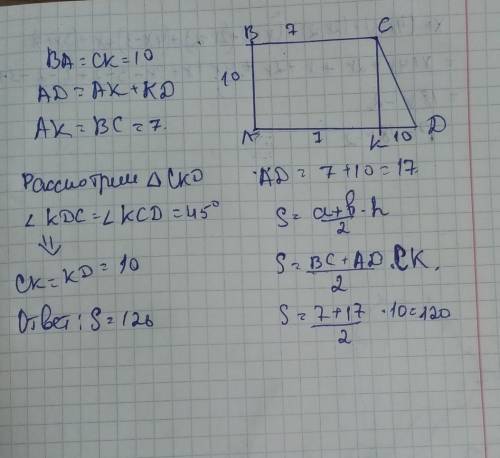 BA = CK = 10
AD = AK + KD
AK = BC = 7.
Рассмотрим △CKD
∠KDC = ∠KCD = 45°
⇓
CK = KD = 10
Ответ: S = 120
B 7 C
10
A 7 K 10 D
AD = 7 + 10 = 17
S = (a+b)/2 · h
S = (BC + AD)/2 · CK.
S = (7 + 17)/2 · 10 = 120